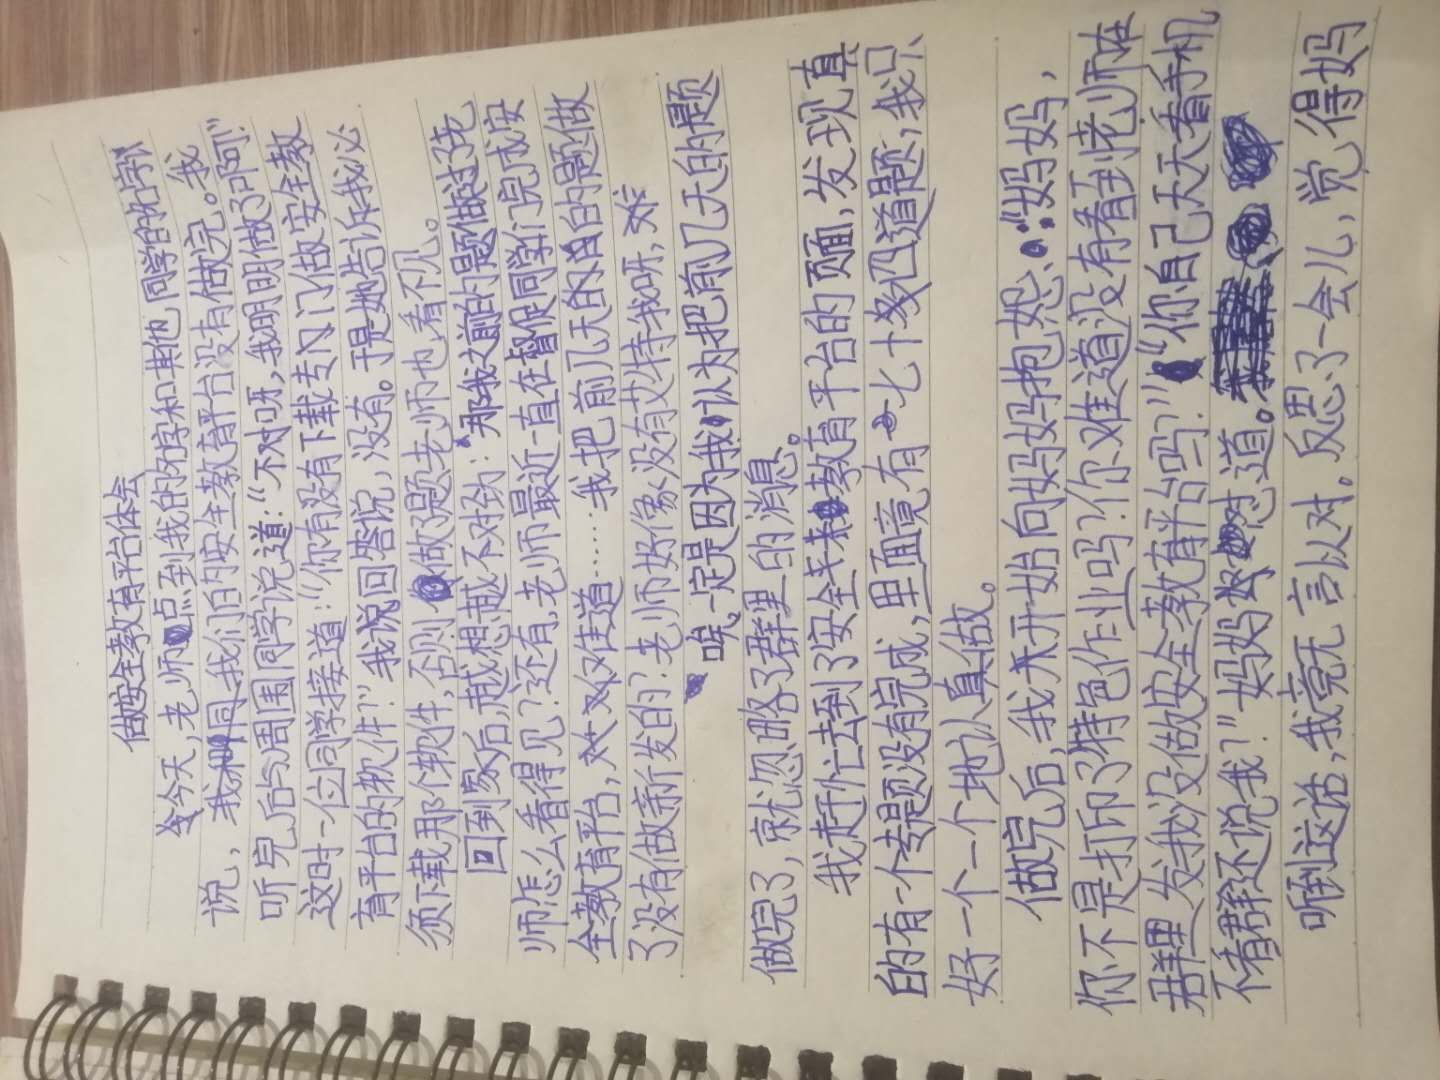 做安全教育平台体会
今天,老师点到我的学和其他同学的名字
说,我们的安全教育平台没有做完。我
听完后与周围同学说道:“不对呀,我明明做了啊!”
这时一位同学接道:“你有没有下载专门做安全教
育平台的软件?”我回答说,没有。于是她告诉我必
须下载用那个软件,否则做了题老师也看不见。
回到家后,越想越不对劲:那我之前的题做过老
师怎么看得见?还有,老师最近一直在督促同学们完成安
全教育平台,难道……我把前几天的的题做
了没有做新发的?老师好像没有艾特我呀,难
唉,一定是因为我认为把前几天的题
做完了,就忽略了群里的消息。
我赶忙去到了安全教育平台的页面,发现真
的有一个专题没有完成,里面竟有七十多道题,我只
好一个一个地认真做。
做完后,我开始向妈妈抱怨:“妈妈,
你不是打印了特色作业吗?你难道没有看到老师在
群里发我没做安全教育平台吗?”“你自己天天看手机
不看群还说我?”妈妈怼道。
听到这话,我竟无言以对。反思了一会儿,觉得妈